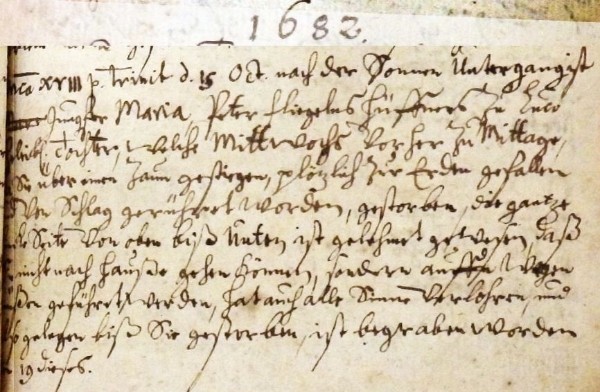 1682.
XVIII p. Trinit d. 15 Oct. nach der Sonnen Untergang ist
Jungfer Maria, Peter Fliegelns Hüffners Zu
Tochter, welche Mittwochs Vorher Zu Mittage,
Sie über einen Zaun gestiegen, plötzlich Zur Erden gefallen
Von Schlag gerühret worden, gestorben, die gantze
Seite Von oben biß Unten, ist gelehmet gewesen, daß
nicht nach Hauße gehen können, sondern auffn Wagen
geführet werden, hat auch alle Sinne Verlohren, und
so gelegen biß Sie gestorben, ist begraben worden
19 dieses.